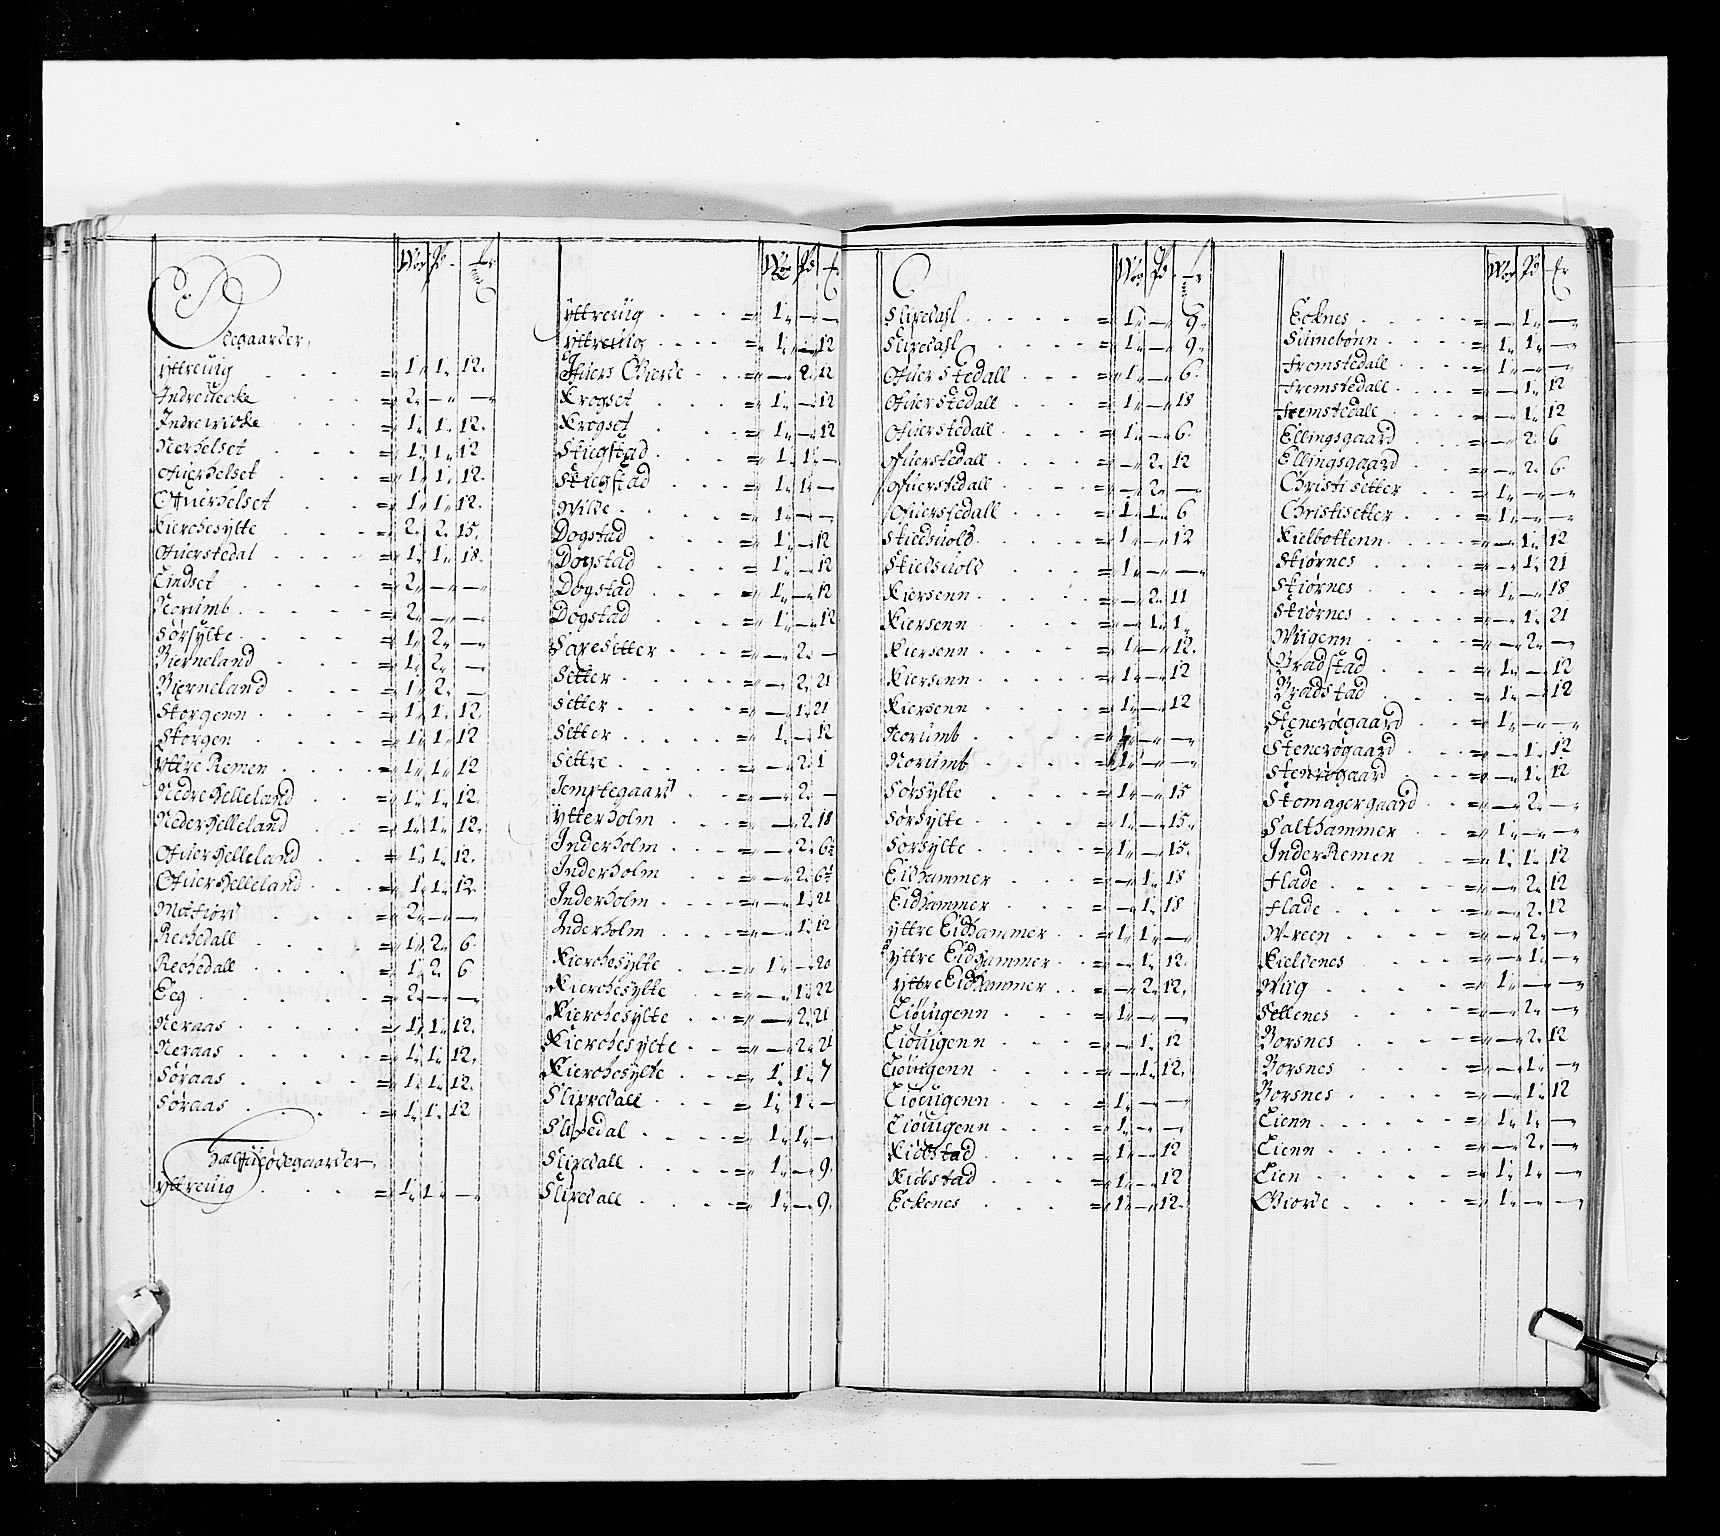 Wog Pd
Ødegaarder,
Yttreuiig = 1„ 1„ 12.
Indreuecke = 2„ — —
Indrewicke = 1„ 1„ 12.
Nerhelset = 1„ 1„ 12
Ofuerhelset = 1„ 1„ 12.
Ofuerhelset = 1„ 1„ 12.
Kierchesylte = 2„ 2„ 15.
Ofuerstedal = 1„ 1„ 18.
Lindset = 2„ — —
Norumb = 2„ — —
Sørsylte = 1„ 2„ —
Bierneland = 1„ 2„ —
Bierneland = 1„ 2„ —
Storgenn = 1„ 1„ 12.
Storgen = 1„ 1„ 12
Yttre Remen = 1„ 1„ 12
Nedre Helleland = 1„ 1„ 12.
Neder Helleland = 1„ 1„ 12.
Ofuer Helleland = 1„ 1„ 12.
Ofuer Helleland = 1„ 1„ 12.
Motiord = 2„ — —
Rechedall = 1„ 2„ 6.
Rechedall = 1„ 2„ 6
Eeg = 2„ — —
Neraas = 1„ 1„ 12.
Neraas = 1„ 1„ 12.
Søraas = 1„ 1„ 12.
Søraas = 1„ 1„ 12
Halfueødegaarder,
Yttreuiig = 1„ 1„ —
Wog Pd
Yttreuiig = 1„ — —
Yttreuiig = 1„ — 12
Ifuers Gierde = — 2„ 12
Krogset = 1„ — 12
Krogset = 1„ — 12
Skiegstad = 1„ 1„ —
Skiegstad = 1„ 1„ —
Wilde = 1„ — —
Dogstad = 1„ — 12
Dogstad = 1„ — 12
Dogstad = 1„ — 12
Dogstad = 1„ — 12
Saxesetter = — 2„ —
Setter = — 2„ 21
Setter = — 1„ 21
Setter = 1„ — 12
Settre = — 2„ 1
Jemptegaard = — 2„ —
Ytterholm = — 2„ 18
Inderholm = — 2„ 6½
Inderholm = — 2„ 6½
Inderholm = — 1„ 21
Inderholm = — 1„ 12
Kierchesylte = 1„ — 20
Kierchesylte = — 1„ 22
Kierchesylte = — 2„ 21
Kierchesylte = — 2„ 21
Kierchesylte = 1„ 1„ 7
Slipredall = 1„ 1„ —
Slipedal = 1„ 1„ —
Slipedall = 1„ — 9.
Slipedall = 1„ — 9.
Wog Pd
Slipedahl = 1„ — 9.
Slipedahl = 1„ — 9.
Ofuerstedall = 1„ — 6.
Ofuerstedall = 1„ — 18
Ofuerstedall = 1„ — 6.
Ofuerstedall = — 2„ 12
Ofuerstedall = — 2„ —
Ofuerstedall = 1„ 1„ 6
Skieduold = 1„ — 12
Skieduold = 1„ — —
Kiersenn = — 2„ 11
Kiersenn = — 1„ 1„
Kiersenn = 1„ — 12.
Kiersenn = 1„ — 12
Kiersenn = 1„ — 12
Norumb = 1„ — —
Norumb = 1„ — —
Sørsylte = 1„ — 15
Sørsylte = 1„ — 15.
Sørsylte = 1„ — 15.
Eidhammer = — 1„ 18
Eidhammer = — 1„ 18
Yttre Eidhammer = 1„ 1„ —
Yttre Eidhammer = — 1„ 12.
Yttre Eidhammer = — 2„ 12.
Liøuigenn = 1„ — —
Liøuigenn = — 1„ 12
Liøuigenn = — 1„ 12.
Liøuigenn = 1„ — —
Liøuigenn = 1„ — —
Kidstad = 1„ — 12
Kidstad = 1„ — 12
Eckenes = 1„ — 12.
Wog Pd
Ecknes = — 1„ —
Siimebønn = 1„ 1„ —
Fremstedall = 1„ — —
Fremstedall = — 1„ 12
Fremstedale = — 1„ 12
Ellingsgaard = — 2„ 6
Ellingsgaard = — 2„ 6.
Christisetter = 1„ — —
Christisetter = 1„ — —
Kielbottenn = — 1„ 12
Skiørnes = — 1„ 21
Skiørnes = 1„ — 18
Skiørnes = — 1„ 21
Wiigenn = — 2„ —
Bradstad = 1„ — 12
Bradstad = 1„ — 12
Stenerøgaard = 1„ — —
Stenerøgaard = — 1„ 12
Stenrøgaard = — 1„ 12
Skomagergaard = — 2„ —
Salthammer = 1„ — —
Inder Remen = 1„ 1„ 12
Flade = — 2„ 12
Flade = — 2„ 12
Wreen = — 2„ —
Kieldenes = — 1„ —
Wiig = 1„ — —
Sellenes = — 2„ —
Borsnes = — 2„ 12
Borsnes = — 1„ —
Borsnes = — 1„ 12
Lienn = 1„ 1„ —
Lienn = — 2„ —
Lien = 1„ 1„ —
Giorde = 1„ — —